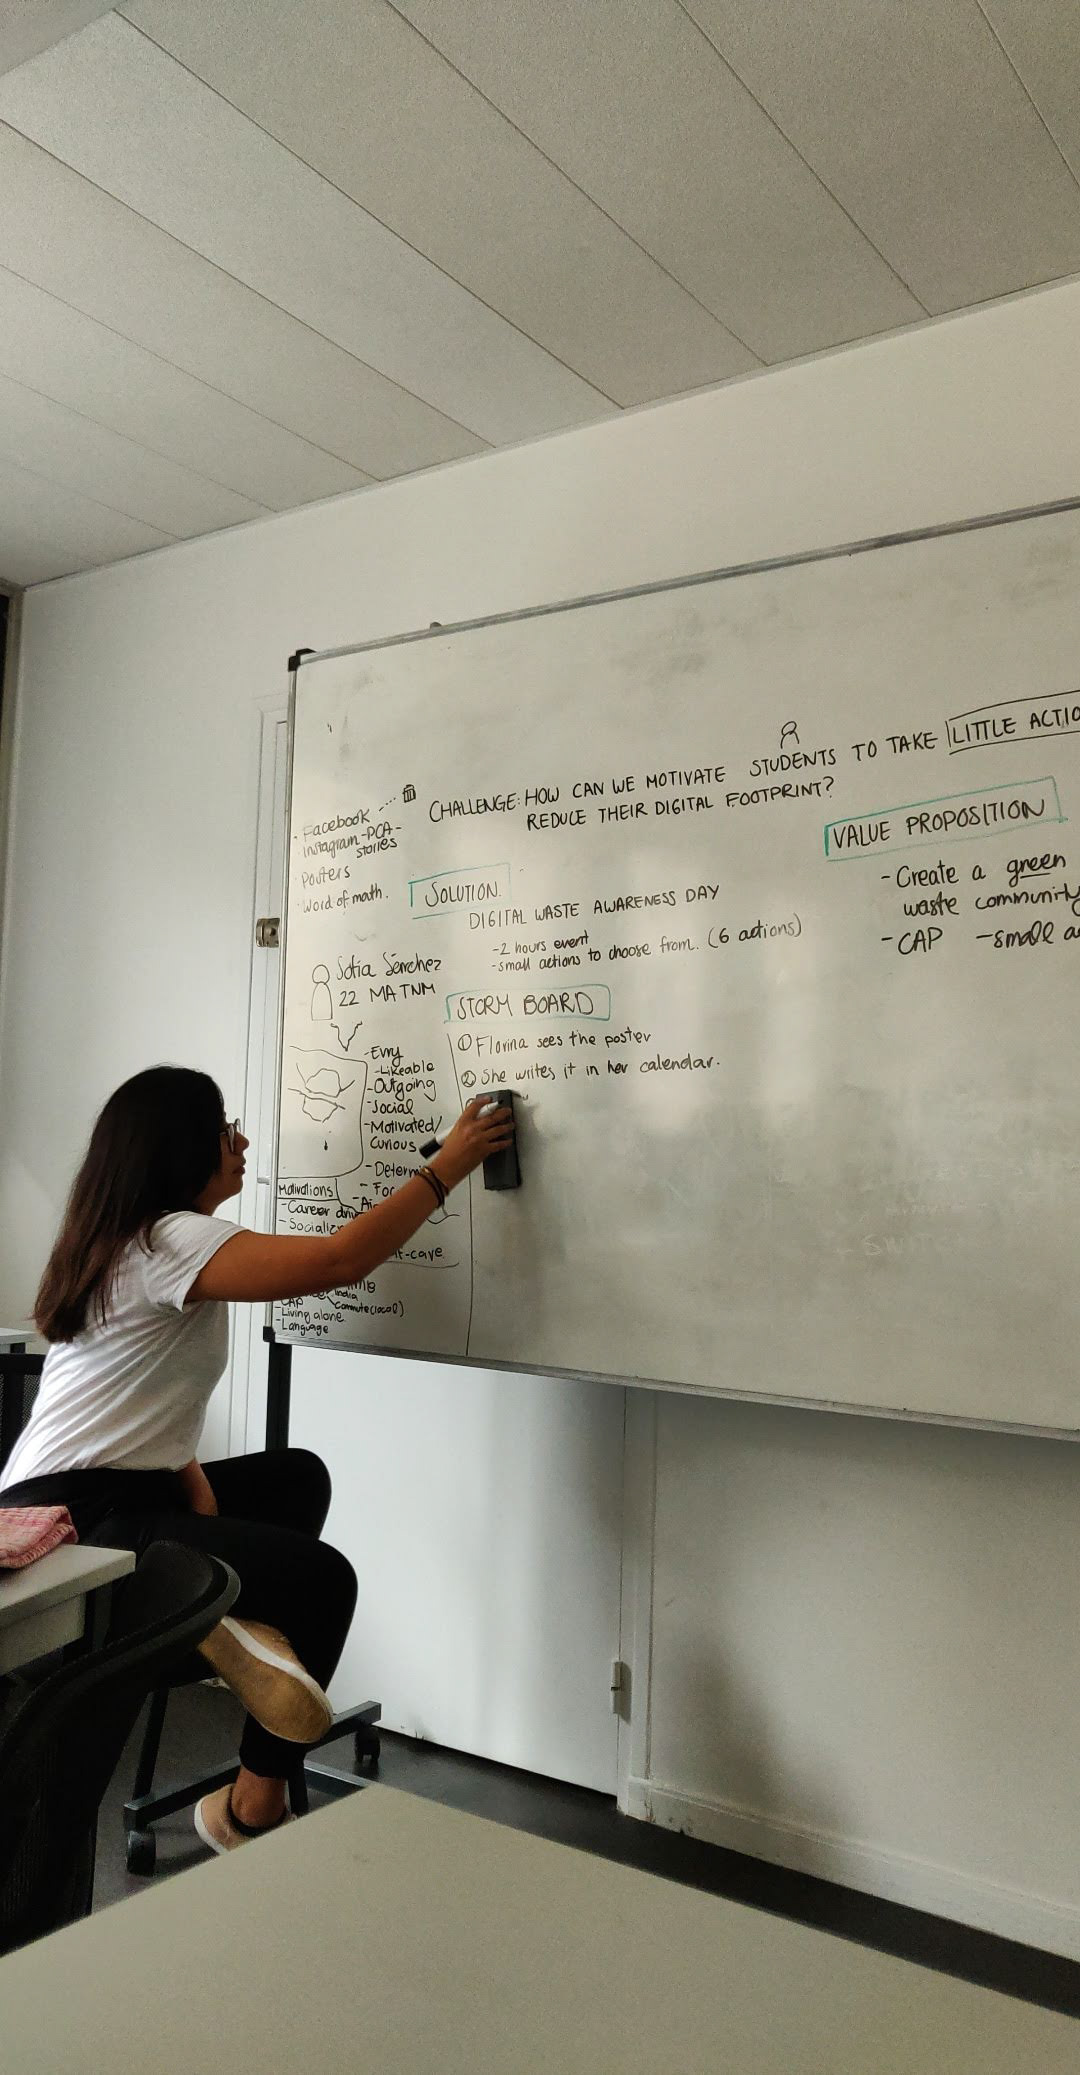 CHALLENGE: HOW CAN WE MOTIVATE STUDENTS TO TAKE LITTLE ACTIO
REDUCE THEIR DIGITAL FOOTPRINT?
- Facebook
- Instagram-PCA-
stories
- Posters
- Word of math.
SOLUTION.
DIGITAL WASTE AWARENESS DAY
-2 hours event
-small actions to choose from. (6 actions)
VALUE PROPOSITION
- Create a green
waste community
- CAP - small a
Sofia Sánchez
22 MA TNM
- Evry
- Likeable
- Outgoing
- Social
- Motivated/
Curious
- Determi
- Fo
Motivations
- Career driv
- Socializ
-care
India
CAP
Commute (local)
- Living alone
- Language
STORM BOARD
① Florina sees the poster
② She writes it in her calendar.